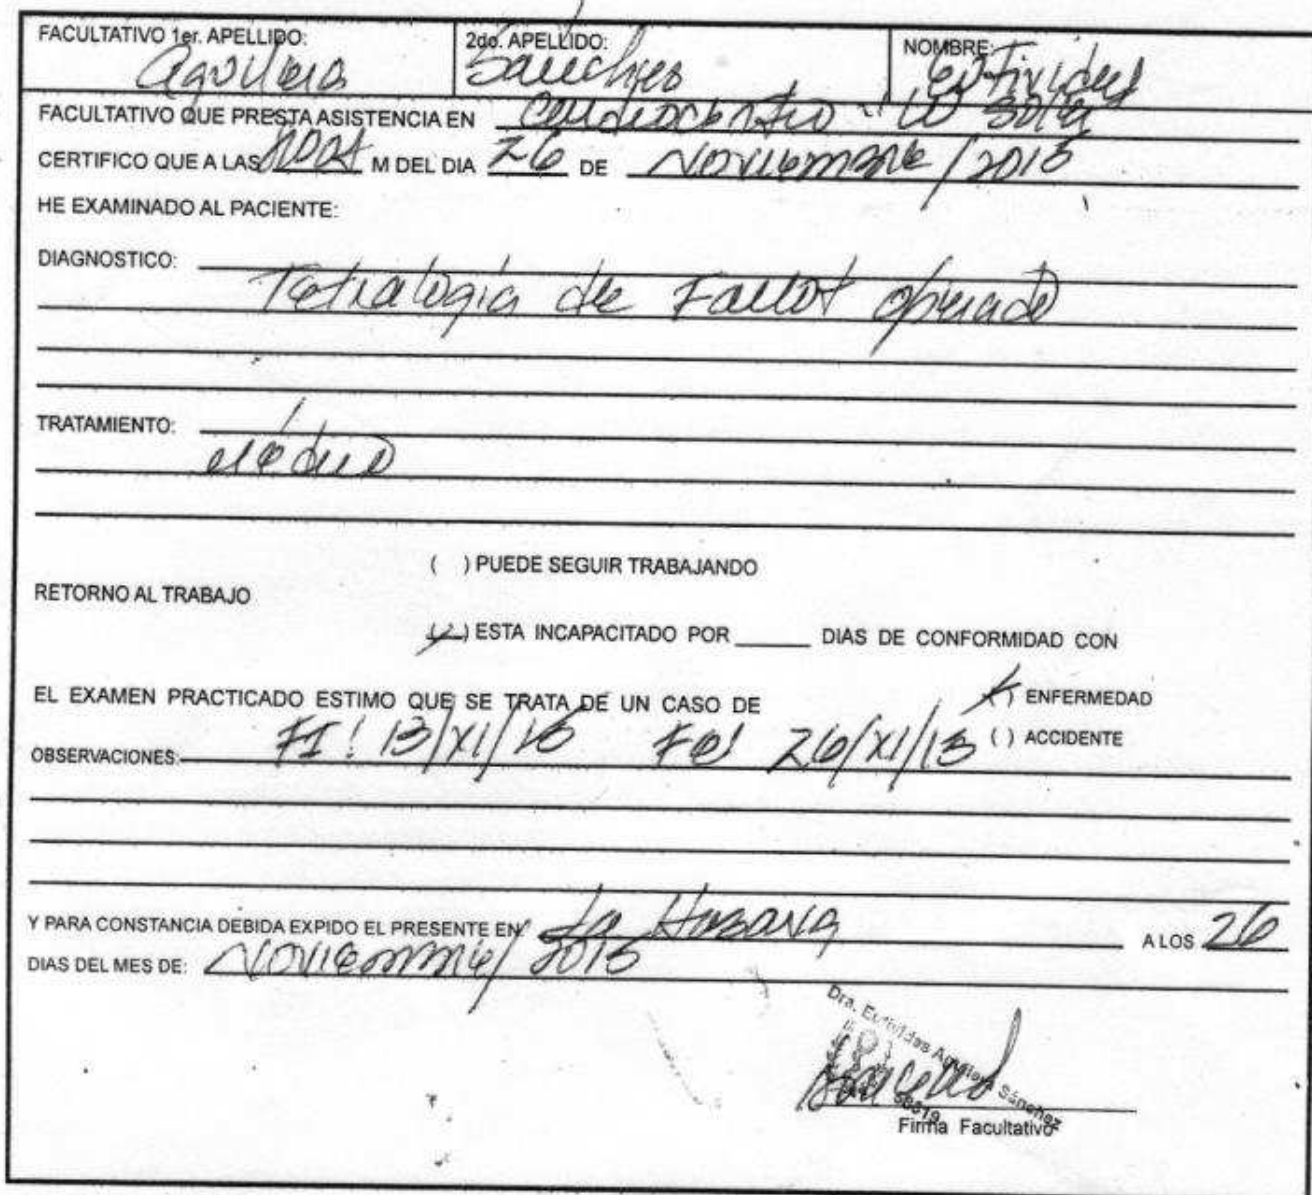 FACULTATIVO 1er. APELLIDO: 2do. APELLIDO: NOMBRE:
Aguilera Sánchez Eutivides
FACULTATIVO QUE PRESTA ASISTENCIA EN Cardiocentro W Soler
CERTIFICO QUE A LAS M DEL DIA 26 DE Noviembre/2015
HE EXAMINADO AL PACIENTE:
DIAGNOSTICO:
Tetralogia de Fallot operado
TRATAMIENTO:
Médico
( ) PUEDE SEGUIR TRABAJANDO
RETORNO AL TRABAJO
(✓) ESTA INCAPACITADO POR ______ DIAS DE CONFORMIDAD CON
EL EXAMEN PRACTICADO ESTIMO QUE SE TRATA DE UN CASO DE (X) ENFERMEDAD
OBSERVACIONES: FI: 13/XI/15 FE: 26/XI/15 ( ) ACCIDENTE
Y PARA CONSTANCIA DEBIDA EXPIDO EL PRESENTE EN La Habana A LOS 26
DIAS DEL MES DE: Noviembre/2015
Dra. Eutivides Aguilera Sánchez
Firma Facultativo